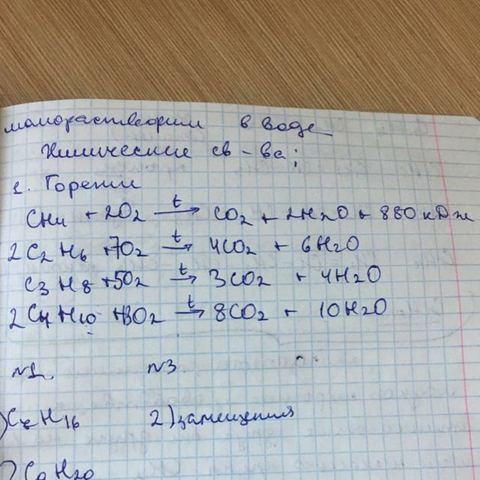 малорастворим в воде
Химические св-ва:
1. Горение
CH4 + 2O2 →t CO2 + 2H2O + 880 кДж
2C2H6 + 7O2 →t 4CO2 + 6H2O
C3H8 + 5O2 →t 3CO2 + 4H2O
2C4H10 + 13O2 →t 8CO2 + 10H2O
№1. №3
C7H16 2) замещения
C9H20